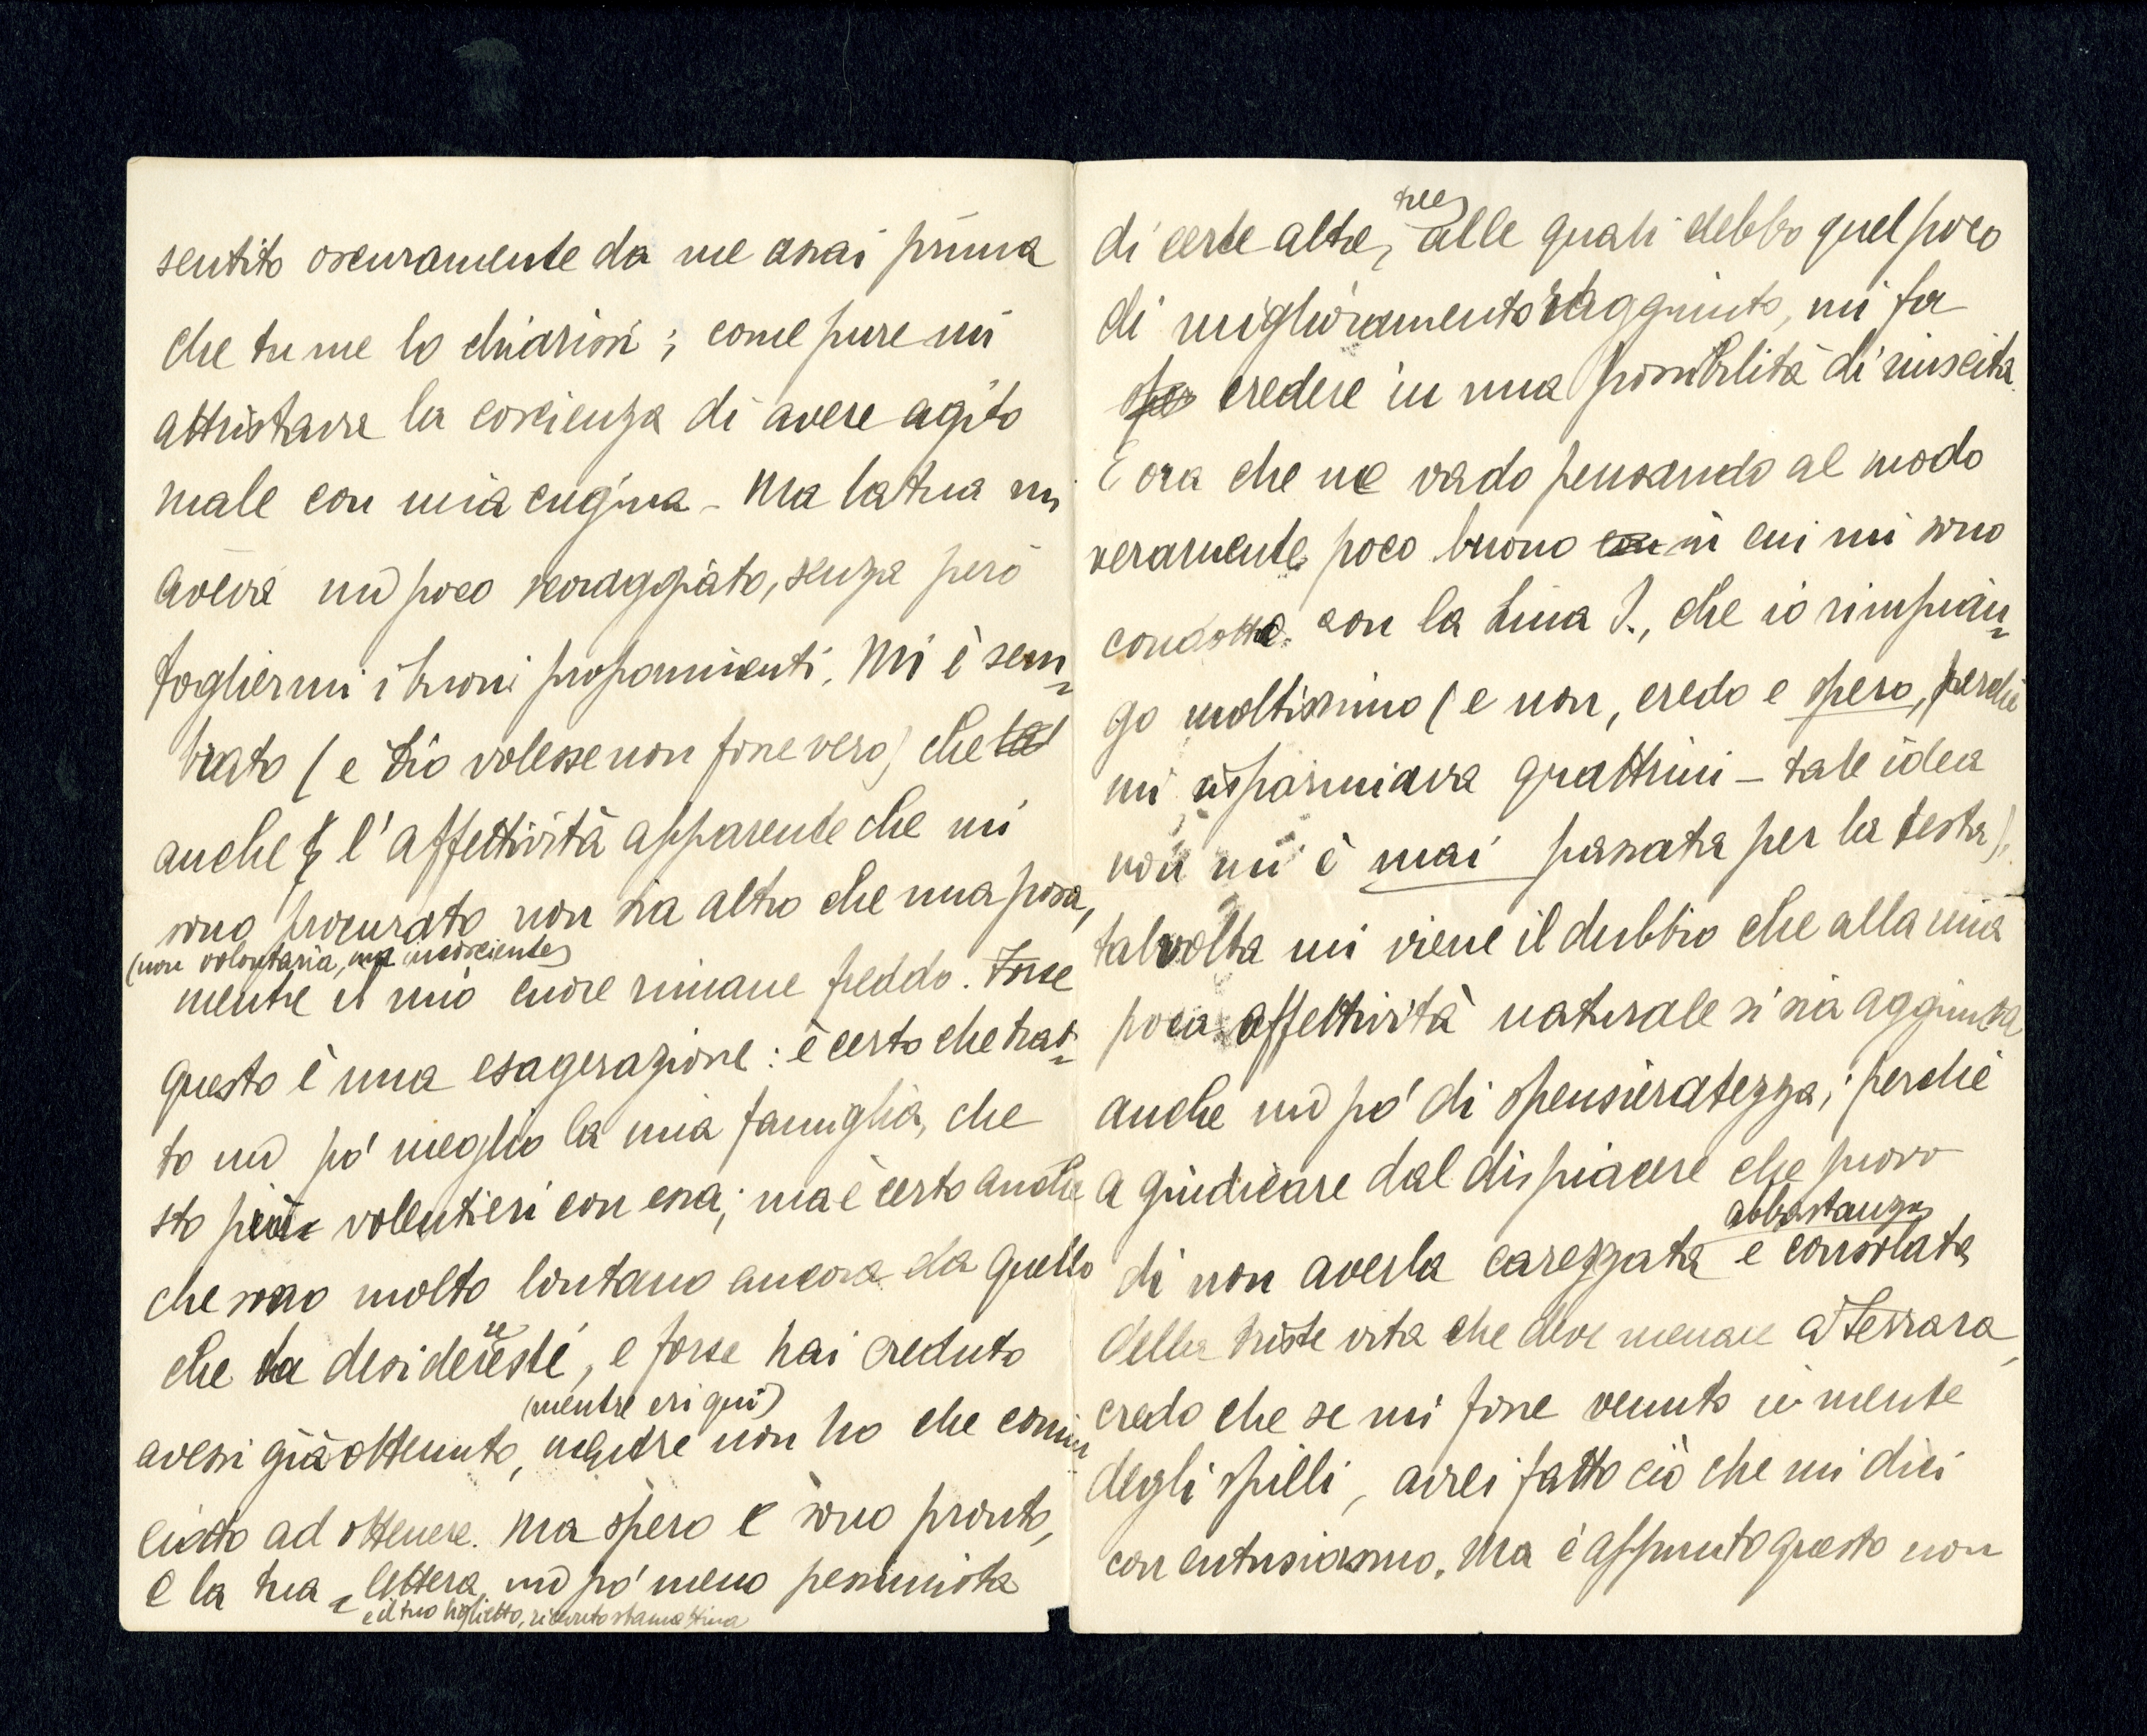 sentito oscuramente da me assai prima
che tu me lo chiarissi; come pure mi
attristava la coscienza di avere agito
male con mia cugina - Ma la tua mi
aveva un poco scoraggiato, senza però
togliermi i buoni proponimenti. Mi è sem=
brato (e Dio volesse non fosse vero) che la
anche l'affettività apparente che mi
sono procurato non sia altro che una posa,
(non volontaria, ma incosciente)
mentre il mio cuore rimane freddo. Forse
questo è una esagerazione: è certo che trat=
to un po' meglio la mia famiglia, che
sto più volentieri con essa; ma è certo anche
che sono molto lontano ancora da quello
che tu desidereresti, e forse hai creduto
(mentre eri qui)
avessi già ottenuto, mentre non ho che comin=
ciato ad ottenere. Ma spero e sono pronto,
e la tua lettera, un po' meno pessimista
e il tuo biglietto, ricevuto stamattina
tue
di certe altre, alle quali debbo quel poco
di miglioramento raggiunto, mi fa
spe credere in una possibilità di riuscita.
E ora che ne vado pensando al modo
veramente poco buono con in cui mi sono
condotto con la Lina J., che io rimpian=
go moltissimo (e non, credo e spero, perchè
mi risparmiava quattrini - tale idea
non mi è mai passata per la testa),
talvolta mi viene il dubbio che alla mia
poca affettività naturale si sia aggiunta
anche un po' di spensieratezza; perchè
a giudicare dal dispiacere che provo
abbastanza
di non averla carezzata e consolata
della triste vita che deve menare a Ferrara,
credo che se mi fosse venuto in mente
degli spilli, avrei fatto ciò che mi dici
con entusiasmo. Ma è appunto questo non